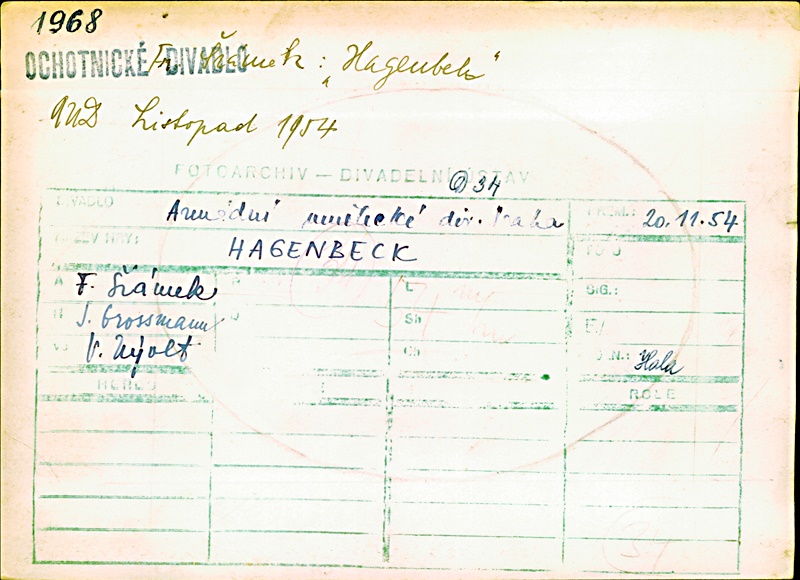 1968
OCHOTNICKÉ DIVADLO
Fr. Šrámek: „Hagenbek"
AUD Listopad 1954
FOTOARCHIV — DIVADELNÍ ÚSTAV
D 34
DIVADLO Armádní umělecké div. Praha PREM.: 20.11.54
NÁZEV HRY: HAGENBECK FOTO
A F. Šrámek R L SIG.:
H J. Grossmann Sh F/
V. Nývlt Ch Hala
HEREC ROLE